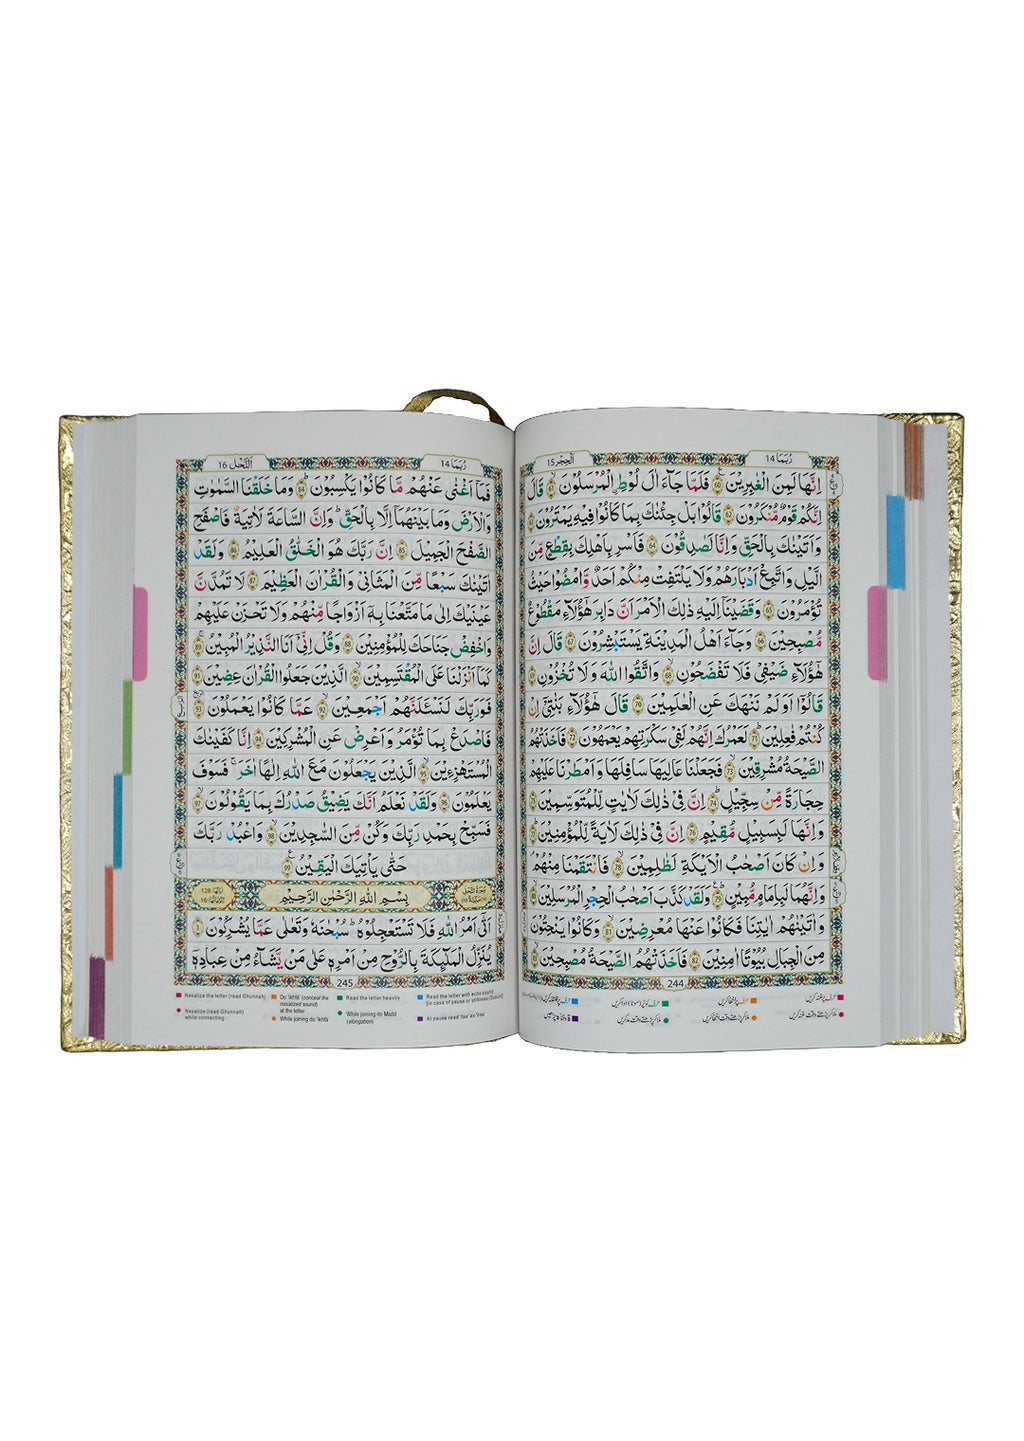 رُبَمَا 14
اَلْحِجْر 15
اِنَّهَا لَمِنَ الْغٰبِرِيْنَ 60 فَلَمَّا جَآءَ اٰلَ لُوْطِ ِۨالْمُرْسَلُوْنَ 61 قَالَ
اِنَّكُمْ قَوْمٌ مُّنْكَرُوْنَ 62 قَالُوْا بَلْ جِئْنٰكَ بِمَا كَانُوْا فِيْهِ يَمْتَرُوْنَ 63
وَاَتَيْنٰكَ بِالْحَقِّ وَاِنَّا لَصٰدِقُوْنَ 64 فَاَسْرِ بِاَهْلِكَ بِقِطْعٍ مِّنَ
الَّيْلِ وَاتَّبِعْ اَدْبَارَهُمْ وَلَا يَلْتَفِتْ مِنْكُمْ اَحَدٌ وَّامْضُوْا حَيْثُ
تُؤْمَرُوْنَ 65 وَقَضَيْنَاۤ اِلَيْهِ ذٰلِكَ الْاَمْرَ اَنَّ دَابِرَ هٰۤؤُلَآءِ مَقْطُوْعٌ
مُّصْبِحِيْنَ 66 وَجَآءَ اَهْلُ الْمَدِيْنَةِ يَسْتَبْشِرُوْنَ 67 قَالَ اِنَّ
هٰۤؤُلَآءِ ضَيْفِيْ فَلَا تَفْضَحُوْنِ 68 وَاتَّقُوا اللّٰهَ وَلَا تُخْزُوْنِ 69
قَالُوْۤا اَوَلَمْ نَنْهَكَ عَنِ الْعٰلَمِيْنَ 70 قَالَ هٰۤؤُلَآءِ بَنٰتِيْۤ اِنْ
كُنْتُمْ فٰعِلِيْنَ 71 لَعَمْرُكَ اِنَّهُمْ لَفِيْ سَكْرَتِهِمْ يَعْمَهُوْنَ 72 فَاَخَذَتْهُمُ
الصَّيْحَةُ مُشْرِقِيْنَ 73 فَجَعَلْنَا عَالِيَهَا سَافِلَهَا وَاَمْطَرْنَا عَلَيْهِمْ
حِجَارَةً مِّنْ سِجِّيْلٍ 74 اِنَّ فِيْ ذٰلِكَ لَاٰيٰتٍ لِّلْمُتَوَسِّمِيْنَ 75
وَاِنَّهَا لَبِسَبِيْلٍ مُّقِيْمٍ 76 اِنَّ فِيْ ذٰلِكَ لَاٰيَةً لِّلْمُؤْمِنِيْنَ 77
وَاِنْ كَانَ اَصْحٰبُ الْاَيْكَةِ لَظٰلِمِيْنَ 78 فَانْتَقَمْنَا مِنْهُمْ
وَاِنَّهُمَا لَبِاِمَامٍ مُّبِيْنٍ 79 وَلَقَدْ كَذَّبَ اَصْحٰبُ الْحِجْرِ الْمُرْسَلِيْنَ 80
وَاٰتَيْنٰهُمْ اٰيٰتِنَا فَكَانُوْا عَنْهَا مُعْرِضِيْنَ 81 وَكَانُوْا يَنْحِتُوْنَ
مِنَ الْجِبَالِ بُيُوْتًا اٰمِنِيْنَ 82 فَاَخَذَتْهُمُ الصَّيْحَةُ مُصْبِحِيْنَ 83
244
رُبَمَا 14
اَلنَّحْل 16
فَمَاۤ اَغْنٰى عَنْهُمْ مَّا كَانُوْا يَكْسِبُوْنَ 84 وَمَا خَلَقْنَا السَّمٰوٰتِ
وَالْاَرْضَ وَمَا بَيْنَهُمَاۤ اِلَّا بِالْحَقِّ وَاِنَّ السَّاعَةَ لَاٰتِيَةٌ فَاصْفَحِ
الصَّفْحَ الْجَمِيْلَ 85 اِنَّ رَبَّكَ هُوَ الْخَلّٰقُ الْعَلِيْمُ 86 وَلَقَدْ
اٰتَيْنٰكَ سَبْعًا مِّنَ الْمَثَانِيْ وَالْقُرْاٰنَ الْعَظِيْمَ 87 لَا تَمُدَّنَّ
عَيْنَيْكَ اِلٰى مَا مَتَّعْنَا بِهٖۤ اَزْوَاجًا مِّنْهُمْ وَلَا تَحْزَنْ عَلَيْهِمْ
وَاخْفِضْ جَنَاحَكَ لِلْمُؤْمِنِيْنَ 88 وَقُلْ اِنِّيْۤ اَنَا النَّذِيْرُ الْمُبِيْنُ 89
كَمَاۤ اَنْزَلْنَا عَلَى الْمُقْتَسِمِيْنَ 90 الَّذِيْنَ جَعَلُوا الْقُرْاٰنَ عِضِيْنَ 91
فَوَرَبِّكَ لَنَسْـَٔلَنَّهُمْ اَجْمَعِيْنَ 92 عَمَّا كَانُوْا يَعْمَلُوْنَ 93
فَاصْدَعْ بِمَا تُؤْمَرُ وَاَعْرِضْ عَنِ الْمُشْرِكِيْنَ 94 اِنَّا كَفَيْنٰكَ
الْمُسْتَهْزِءِيْنَ 95 الَّذِيْنَ يَجْعَلُوْنَ مَعَ اللّٰهِ اِلٰهًا اٰخَرَ فَسَوْفَ
يَعْلَمُوْنَ 96 وَلَقَدْ نَعْلَمُ اَنَّكَ يَضِيْقُ صَدْرُكَ بِمَا يَقُوْلُوْنَ 97
فَسَبِّحْ بِحَمْدِ رَبِّكَ وَكُنْ مِّنَ السّٰجِدِيْنَ 98 وَاعْبُدْ رَبَّكَ
حَتّٰى يَاْتِيَكَ الْيَقِيْنُ 99
بِسْمِ اللّٰهِ الرَّحْمٰنِ الرَّحِيْمِ
اَتٰۤى اَمْرُ اللّٰهِ فَلَا تَسْتَعْجِلُوْهُ سُبْحٰنَهٗ وَتَعٰلٰى عَمَّا يُشْرِكُوْنَ 1
يُنَزِّلُ الْمَلٰٓئِكَةَ بِالرُّوْحِ مِنْ اَمْرِهٖ عَلٰى مَنْ يَّشَآءُ مِنْ عِبَادِهٖۤ
245
Nasalize the letter (read Ghunnah)
Do 'Ikhfa' (conceal the nasalized sound) at the letter
Read the letter heavily
Read the letter with echo sound
Nasalize (read Ghunnah) while connecting
While joining do 'Ikhfa'
While joining do Madd (elongation)
At pause read 'taa' as 'haa'